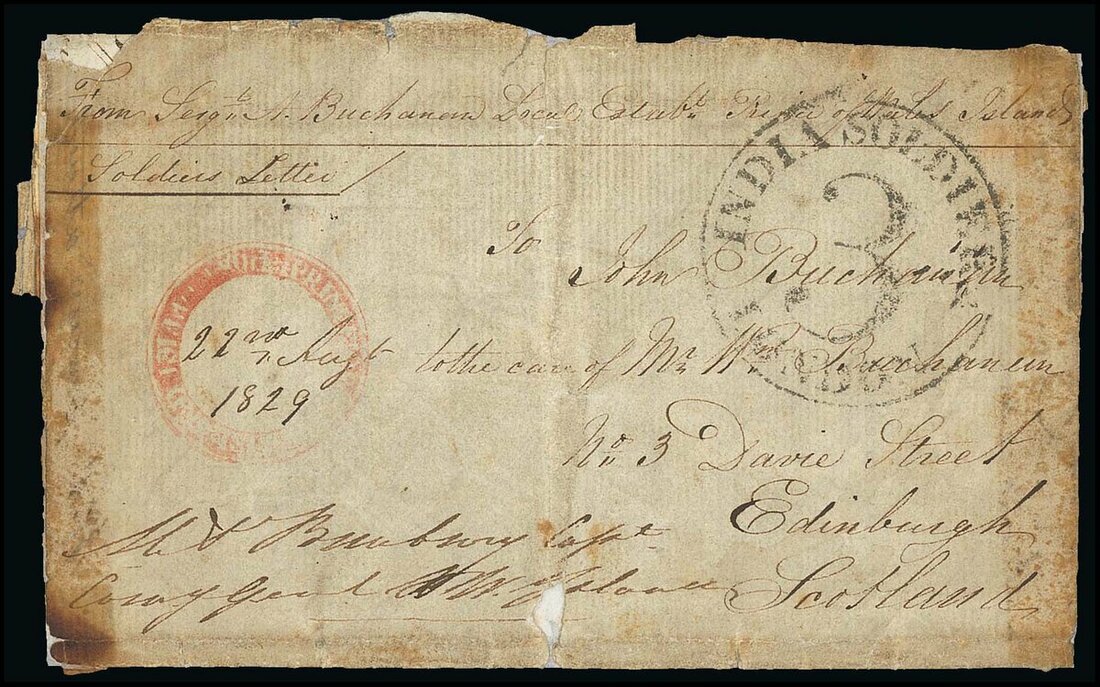 From Sergt. A. Buchanan Local Establt. Prince of Wales Island
Soldiers Letter
INDIA SOLDIERS
3
To
John Buchanan
22nd Augt
1829
to the care of Mr. Wm. Buchanan
No. 3 Davie Street
Edinburgh
Scotland
Bunbury Capt.
Comg